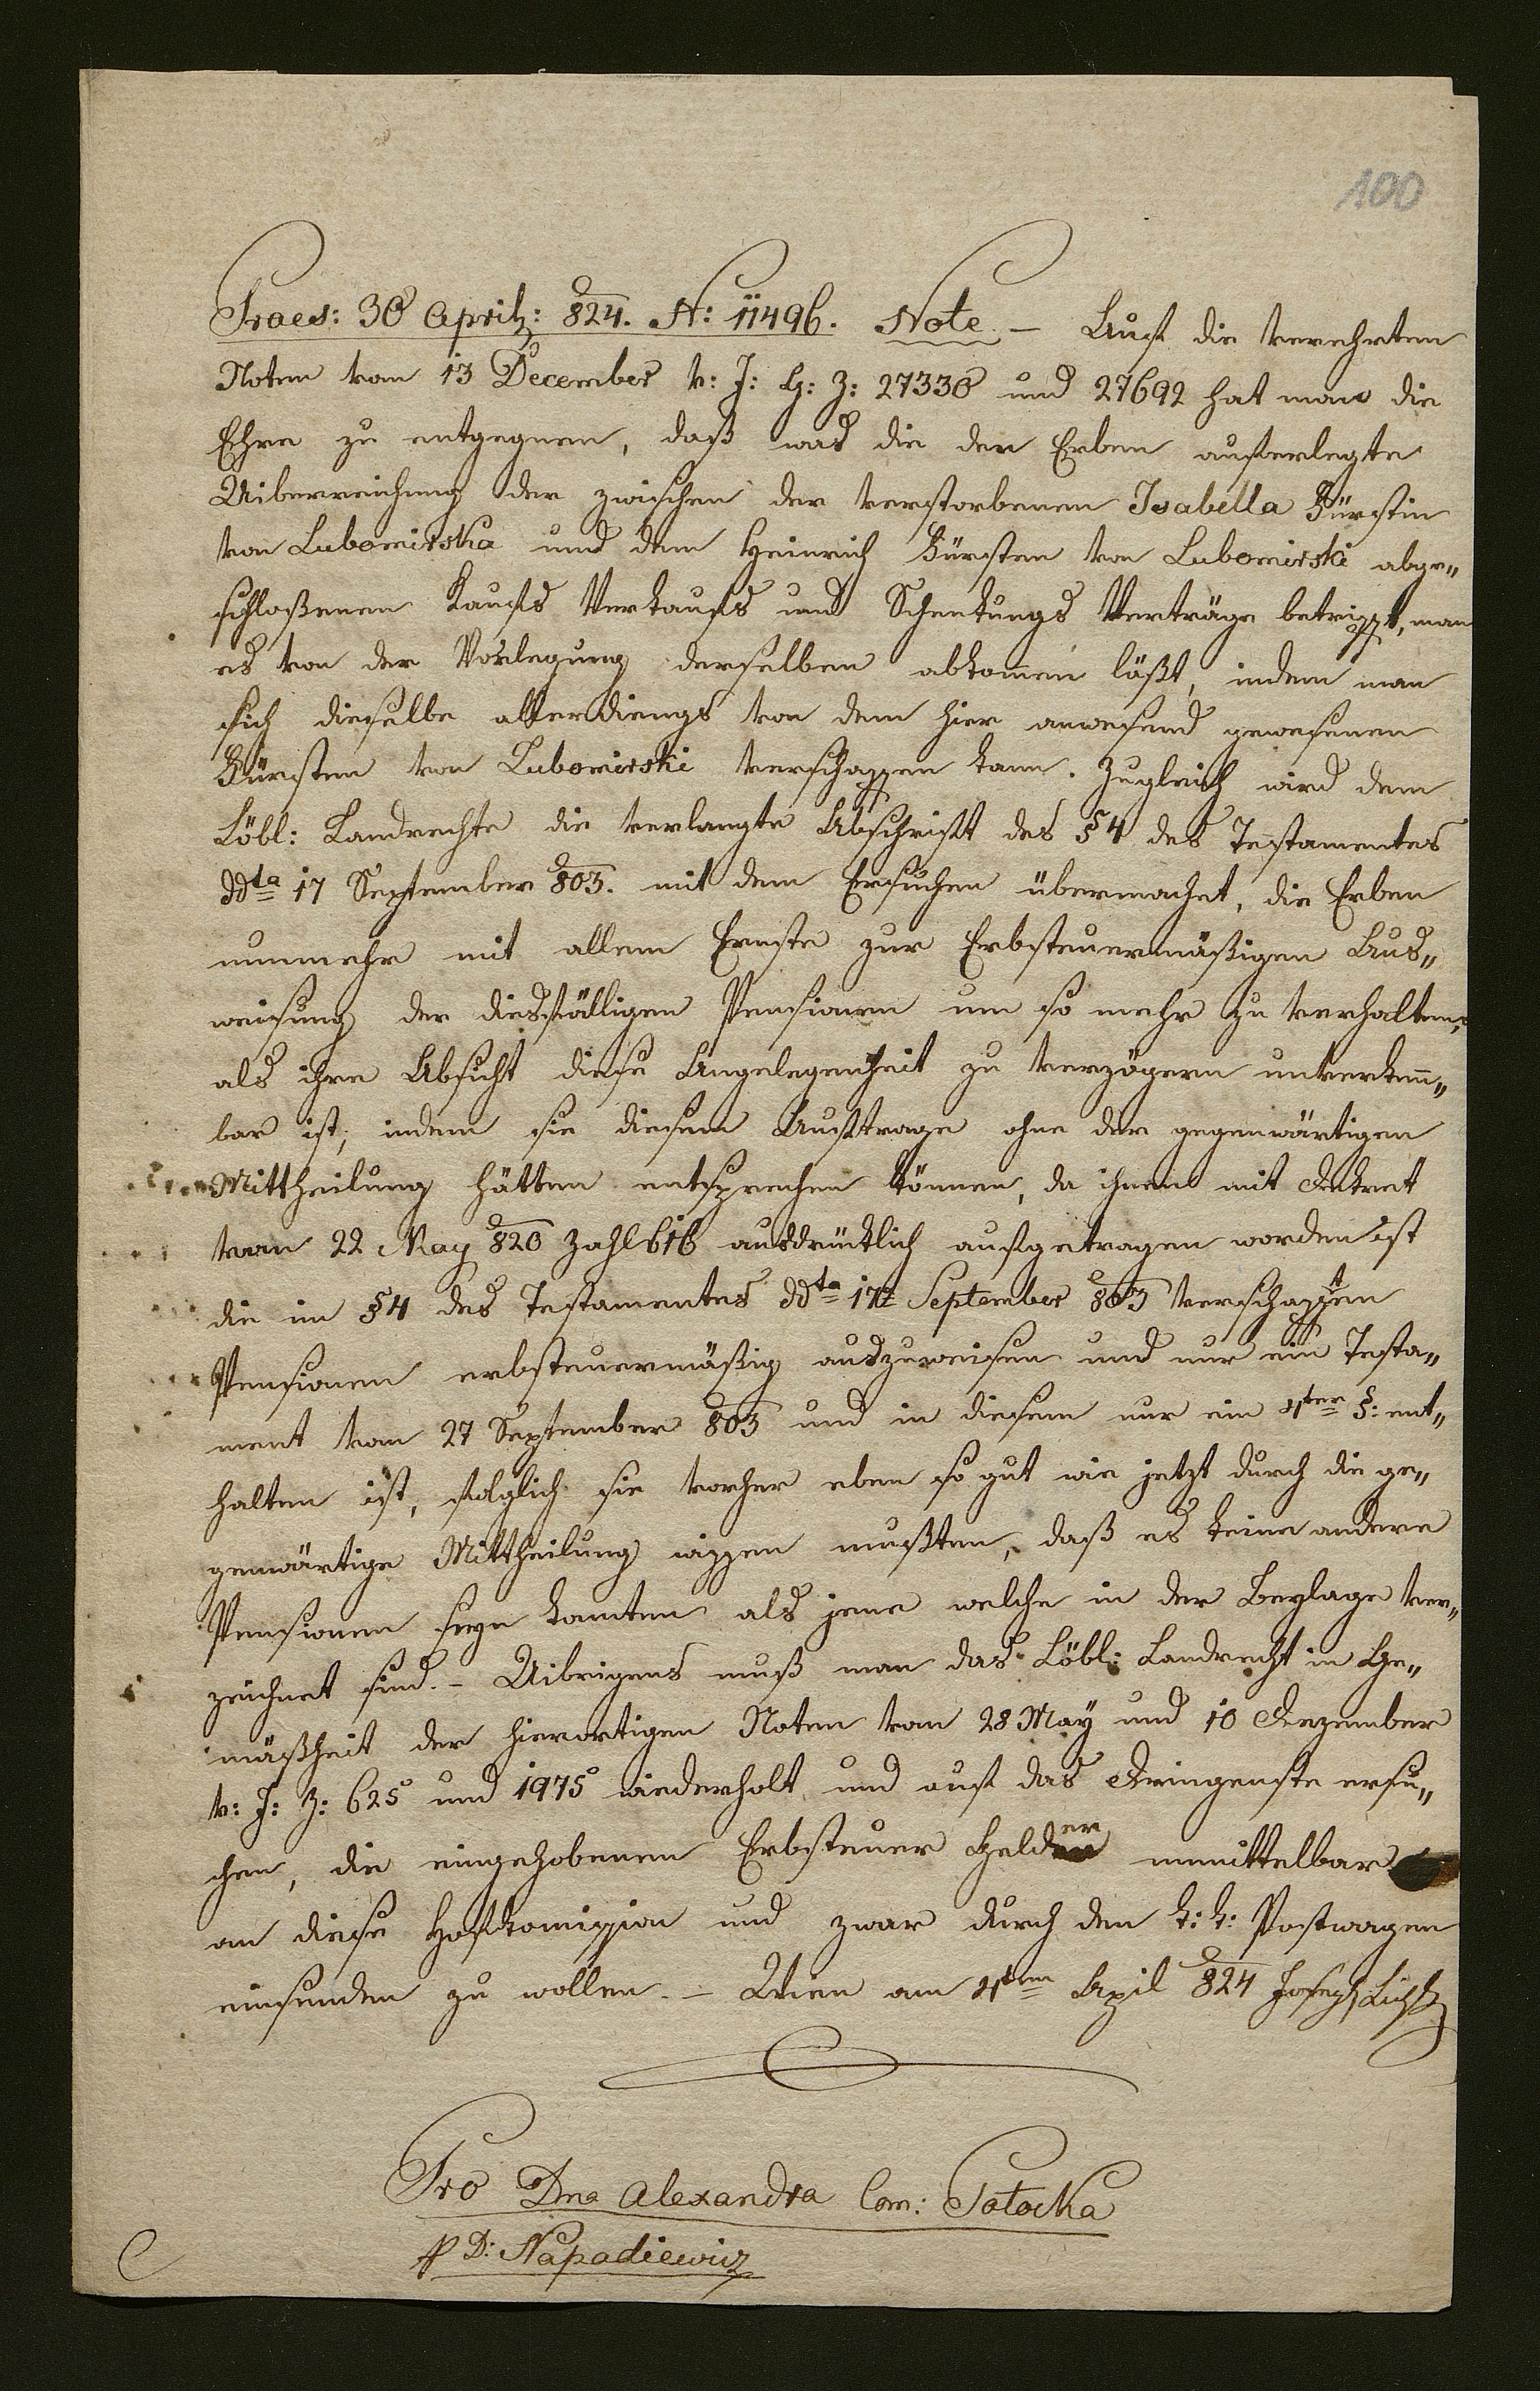 100
Praes: 30 Aprilj: 824. N: 11496. Note – Auf die verehrten
Noten vom 13 December v: J: G: Z: 27330 und 27692 hat man die
Ehre zu entgegnen, daß was die den Erben auferlegte
Uiberreichung der zwischen der verstorbenen Isabella Fürstin
von Lubomirska und dem Heinrich Fürsten von Lubomirski abge„
schloßenen Kaufs Verkaufs und Schenkungs Verträge betrifft, man
es von der Vorlegung derselben abkom̄en läßt, indem man
sich dieselbe allerdiengs von dem hier anwesend gewesenen
Fürsten von Lubomirski verschaffen kann. Zugleich wird dem
Löbl: Landrechte die verlangte Abschrift des §4 des Testamentes
ddta 17 September 803. mit dem Ersuchen übermacht, die Erben
nunmehr mit allem Ernste zur Erbsteuermäßigen Aus„
weisung der diesfälligen Pensionen um so mehr zu verhalten,
als ihre Absicht diese Angelegenheit zu verzögern unverken̄„
bar ist, indem sie diesem Auftrage ohne der gegenwärtigen
Mittheilung hätten entsprechen können, da ihnen mit Dekret
vom 22 May 820 Zahl 616 ausdrücklich aufgetragen worden ist
die im §4 des Testamentes ddta 17t September 803 verschafften
Pensionen erbsteuermäßig auszuweisen und nur ein Testa„
ment vom 27 September 803 und in diesem nur ein 4ter §: ent„
halten ist, folglich sie vorher eben so gut wie jetzt durch die ge„
genwärtige Mittheilung wissen mußten, daß es keine andere
Pensionen seyn konnten als jene welche in der Beylage ver„
zeichnet sind. – Uibrigens muß man das Löbl: Landrecht in Ge„
mäßheit der hierortigen Noten vom 28 May und 10 Dezember
v: J: Z: 625 und 1975 wiederholt und auf das Dringenste ersu„
chen, die eingehobenen Erbsteuer Gelder unmittelbar
an diese Hofkomission und zwar durch den k: k: Postwagen
einsenden zu wollen. – Wien am 4ten April 824 Joseph
Pro Dna Alexandra Com: Potocka
D: Napadiewicz